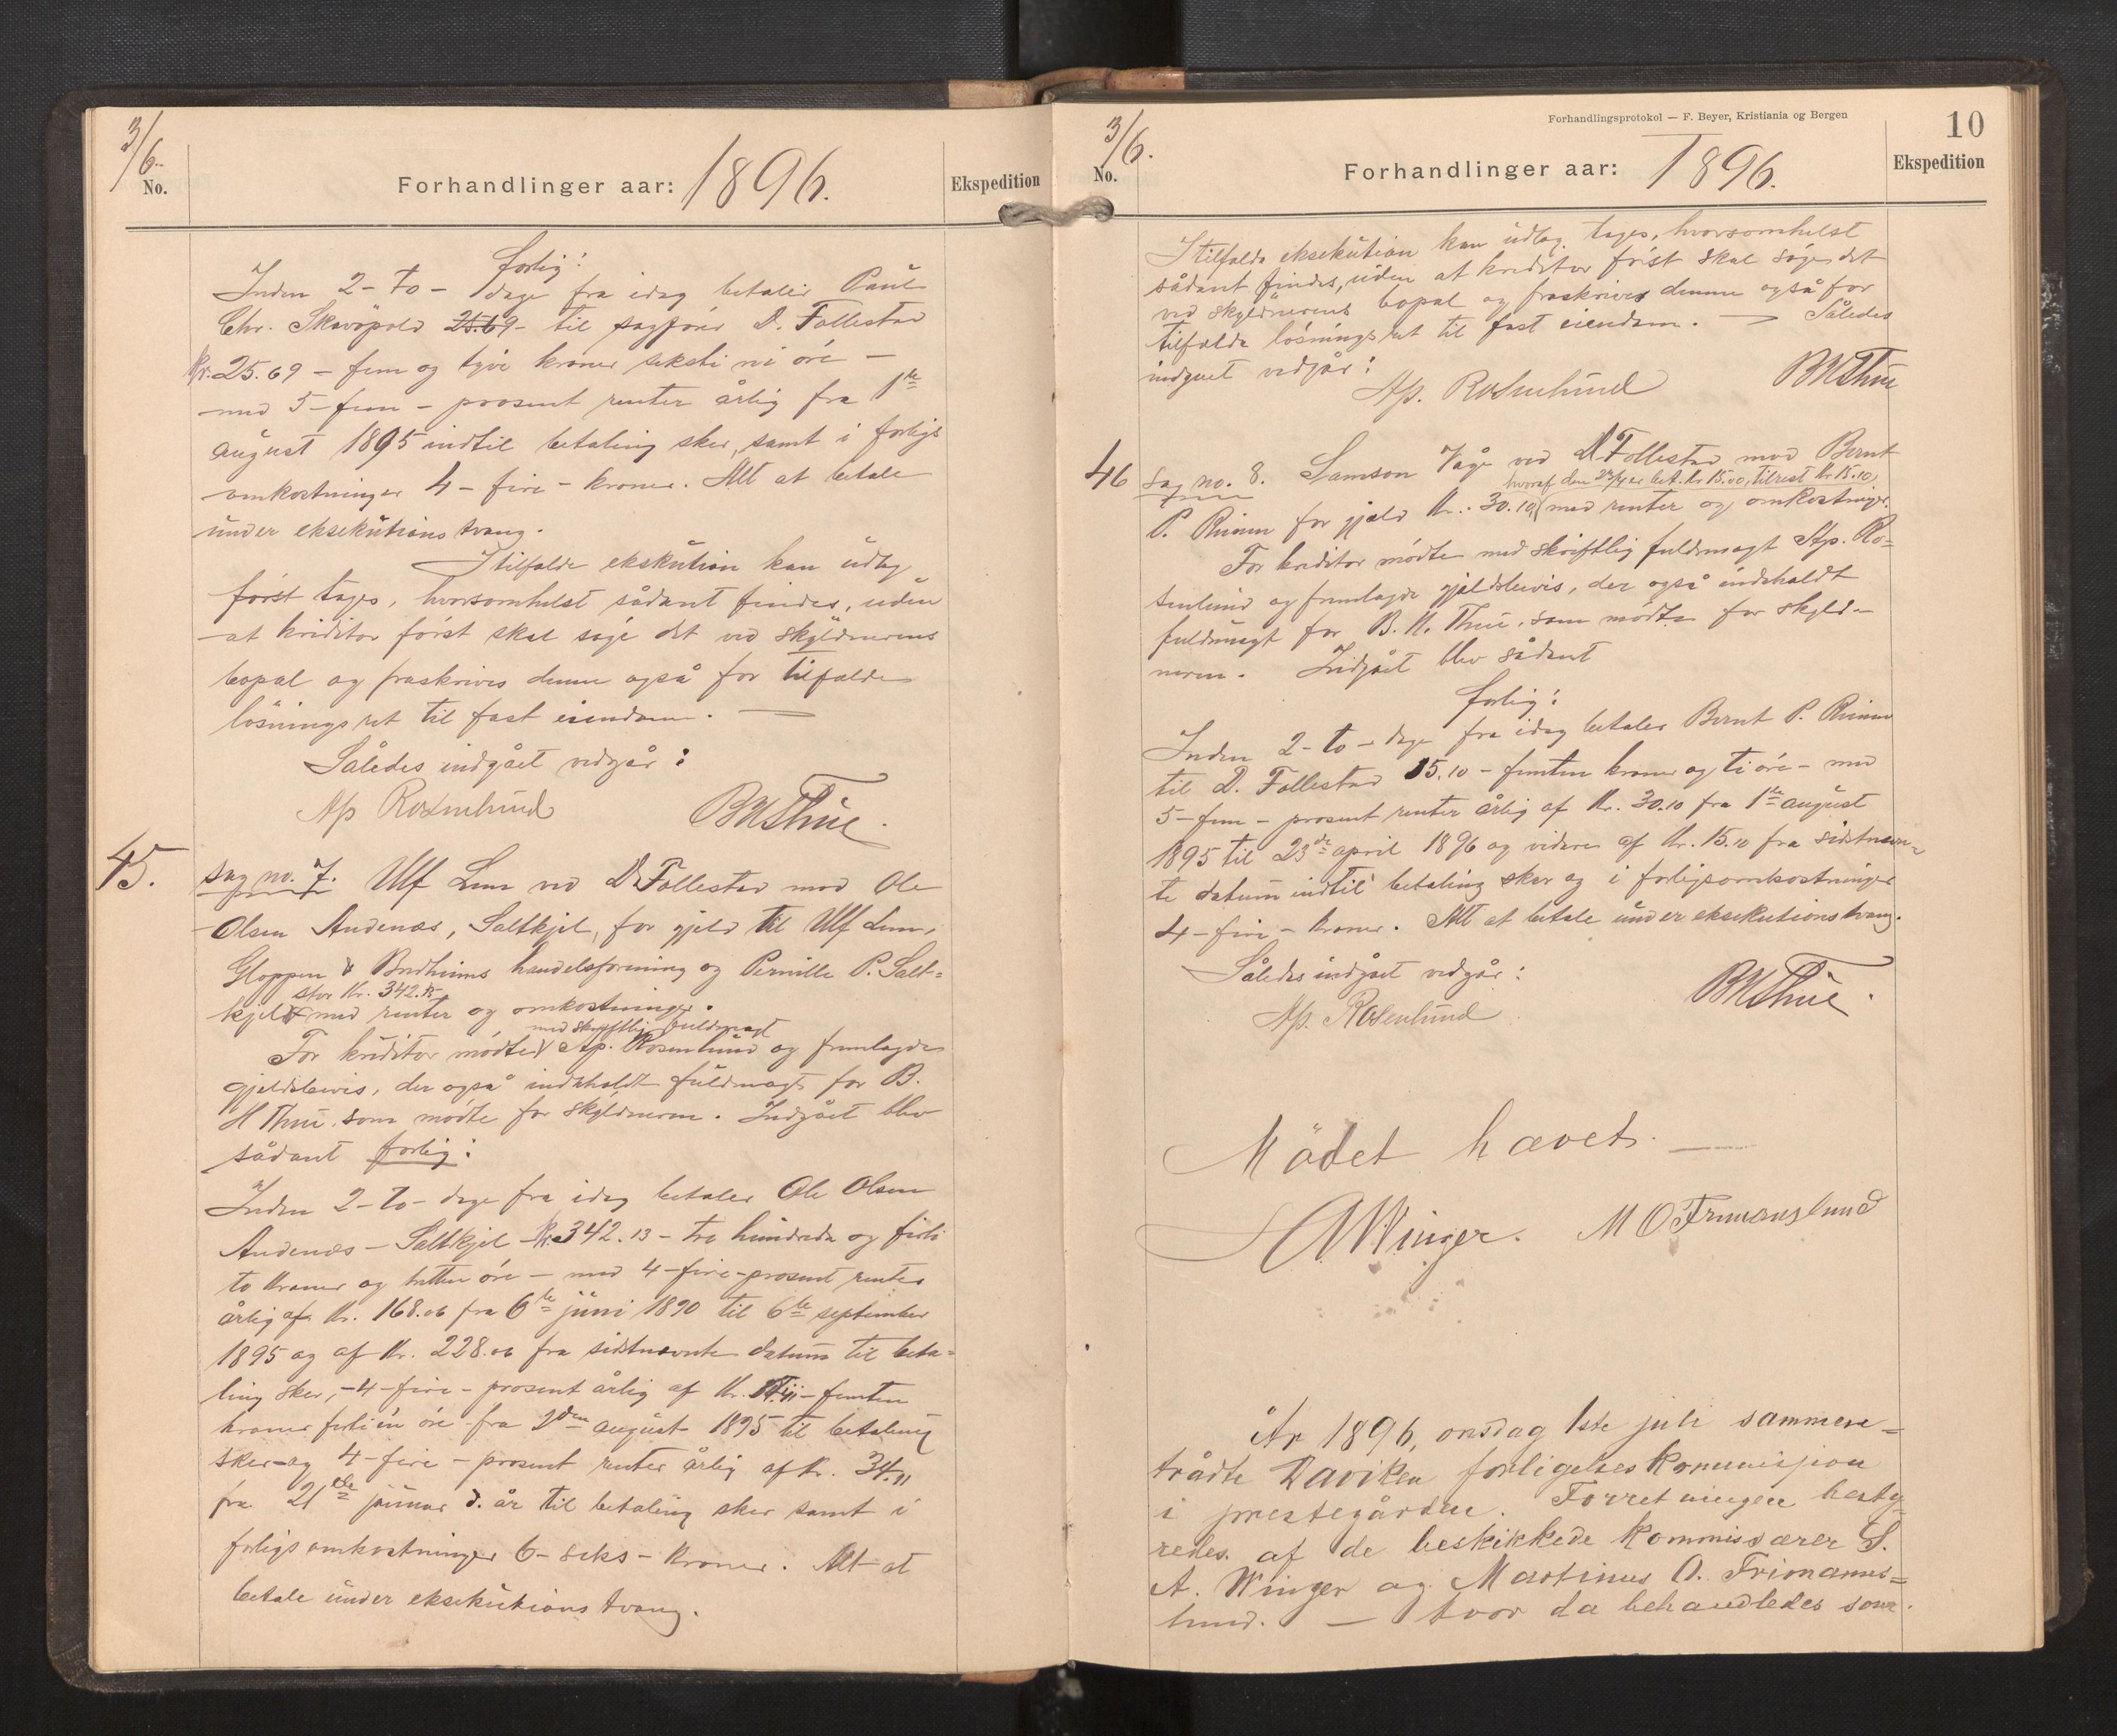 3/6.
No.
Forhandlinger aar: 1896.
Ekspedition
forlig:
Inden 2- to - dage fra idag betaler Paul
Chr. 25.69 - til sagfører D. Follestad
Kr. 25.69 - fem og tyve kroner seksti ni øre -
med 5 - fem - prosent renter årlig fra 1ste
august 1895 indtil betaling sker, samt i forligs
omkostninger 4 - fire - kroner. Alt at betale
under eksekutions tvang.
I tilfælde ekskution kan udlæg
først tages, hvorsomhelst sådant findes, uden
at kreditor først skal søge det ved skyldnerens
bopæl og fraskrives denne også for tilfælde
løsningsret til fast eiendom. —
Således indgået vedgår:
Ap Rosenlund BHThue.
45.
Sag no. 7. Ulf Lem ved D. Follestad mod Ole
Olsen Andenæs, Saltkjel, for gjeld til Ulf Lem,
Gloppen & Bredheims handelsforening og Pernille P. Salt=
stor Kr. 342.13
kjel med renter og omkostninger.
med skriftlig fuldmagt
For kreditor mødte Ap. Rosenlund og fremlagde
gjeldsbevis, der også indeholdt fuldmagt for B.
H Thue, som mødte for skyldneren. Indgået blev
sådant forlig:
Inden 2- to - dage fra idag betaler Ole Olsen
Andenæs - Saltkjel - Kr. 342.13 - tre hundrede og firti
to kroner og tretten øre - med 4 - fire - prosent renter
årlig af Kr. 168.06 fra 6te juni 1890 til 6te september
1895 og af Kr. 228.06 fra sidstnævnte datum til beta=
ling sker, - 4 - fire - prosent årlig af Kr. - femten
kroner firti en øre fra 2den august 1895 til betaling
sker og 4 - fire - prosent renter årlig af Kr. 34.11
fra 21de januar d. år til betaling sker samt i
forligsomkostninger 6 - seks - kroner. Alt at
betale under eksekutions tvang.
Forhandlingsprotokol — F. Beyer, Kristiania og Bergen
10
3/6.
No.
Forhandlinger aar: 1896.
Ekspedition
I tilfælde eksekution kan udlæg tages, hvorsomhelst
sådant findes, uden at kreditor først skal søge det
ved skyldnerens bopæl og fraskrives denne også for
tilfælde løsningsret til fast eiendom. — Således
indgået vedgår:
Ap. Rosenlund BHThue
46
Sag no. 8. Samson Våge ved D. Follestad mod Bernt
hvoraf den 23/4 er bet. kr 15.00, tilrest Kr 15.10,
P. Rimen for gjeld Kr.: 30.10, med renter og omkostninger.
For kreditor mødte med skriftlig fuldmagt Ap. Ro=
senlund og fremlagde gjeldsbevis, der også indeholdt
fuldmagt for B. H. Thue, som mødte for skyld-
neren. Indgået blev sådant
forlig:
Inden 2- to - dage fra idag betaler Bernt P. Rimen
til D. Follestad 15.10 - femten kroner og ti øre - med
5 - fem - prosent renter årlig af Kr. 30.10 fra 1ste august
1895 til 23de april 1896 og videre af Kr. 15.10 fra sidstnævn=
te datum indtil betaling sker og i forligsomkostninger
4 - fire - kroner. Alt at betale under eksekutions tvang.
Således indgået vedgår:
Ap. Rosenlund BHThue.
Mödet hævet. —
S A Winger. M O Frimanslund
År 1896, onsdag 1ste juli sammen=
trådte Daviken forligelseskommisjion
i prestegården. Forretningen besty=
redes af de beskikkede kommissærer S.
A. Winger og Martinus O. Frimans=
lund. — hvor da behandledes som.